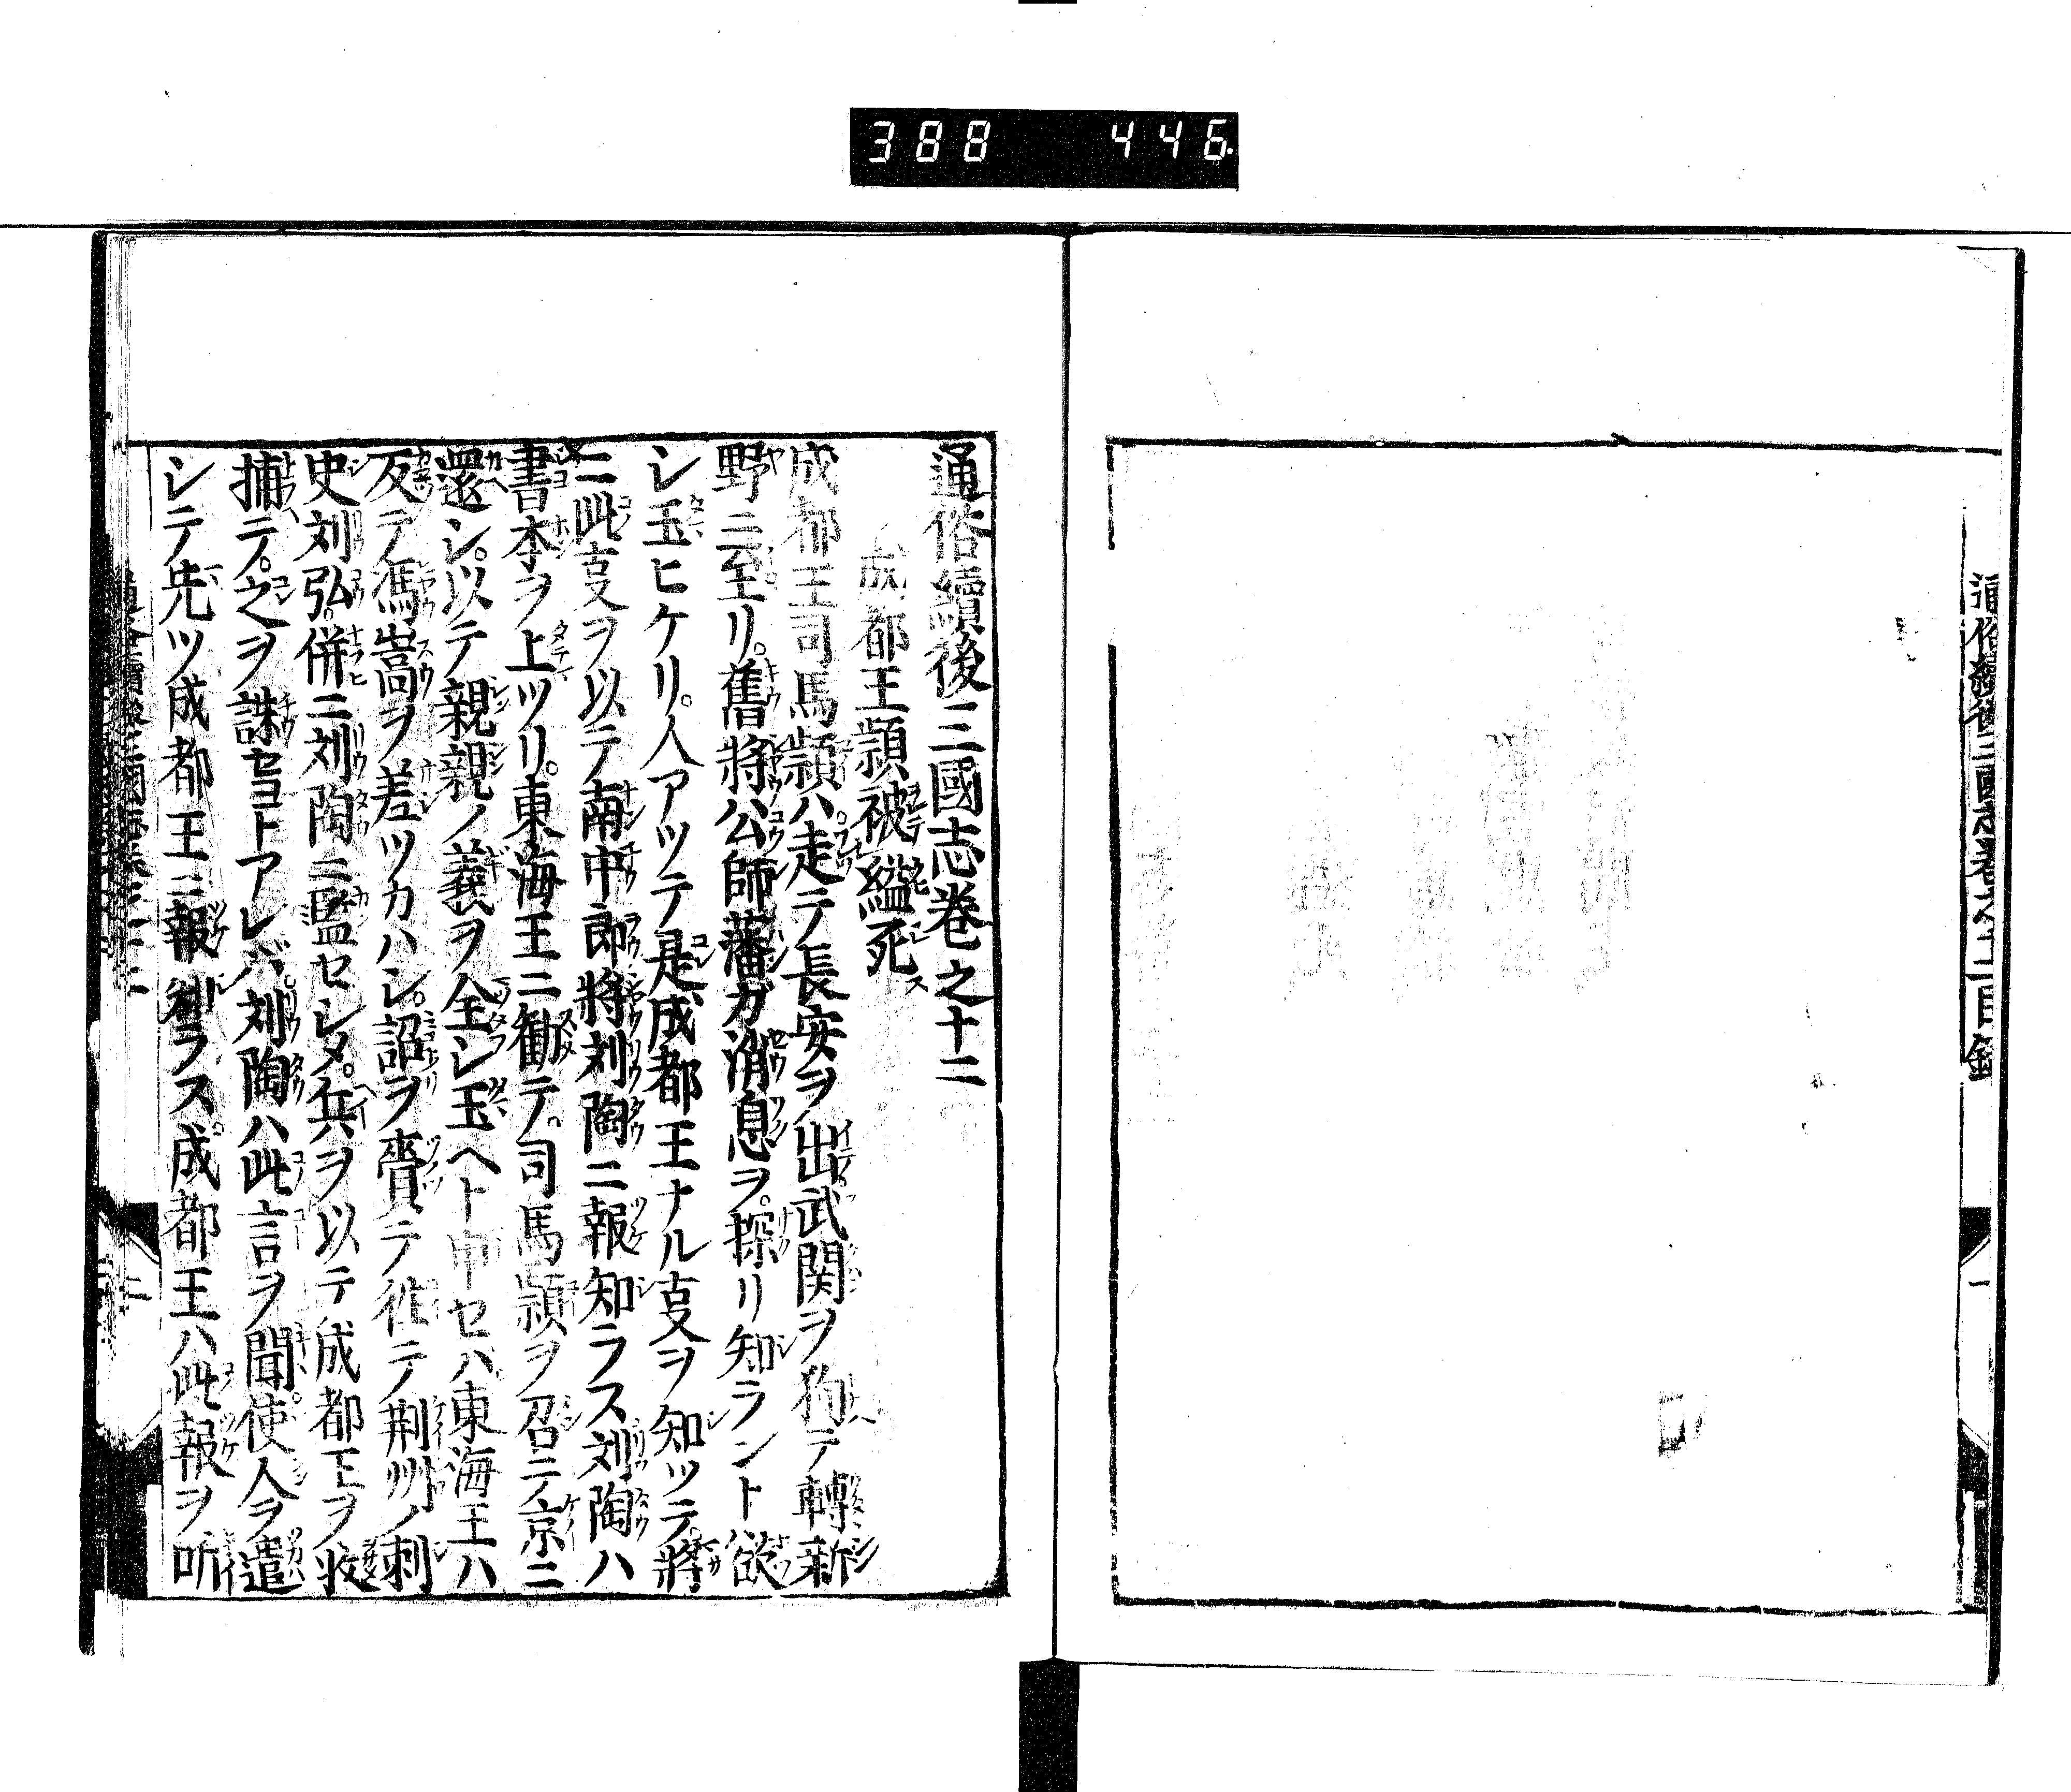 388 446
通俗續後三國志卷之十二目錄
一
通俗續後三國志卷之十二
成都王顈被縊死
成都王司馬顈ハ走テ長安ヲ出武関ヲ狥テ轉新
野ニ至リ。舊將公師藩ガ消息ヲ。探リ知ラント欲
シ玉ヒケリ。人アツテ是成都王ナル㕝ヲ知ツテ。將
ニ此㕝ヲ以テ南中郎將刘陶ニ報知ラス刘陶ハ
書本ヲ上ツリ。東海王ニ勧テ。司馬顈ヲ召テ京ニ
還シ。以テ親親ノ義ヲ全シ玉ヘト申セハ。東海王ハ
反テ馮嵩ヲ差ツカハシ。詔ヲ賷テ徃テ荆州ノ刺
史刘弘。併ニ刘陶ニ監セシメ。兵ヲ以テ成都王ヲ收
捕テ。之ヲ誅セヨトアレバ。刘陶ハ此言ヲ聞使人ヲ遣
シテ先ツ成都王ニ報知ラス。成都王ハ此報ヲ听